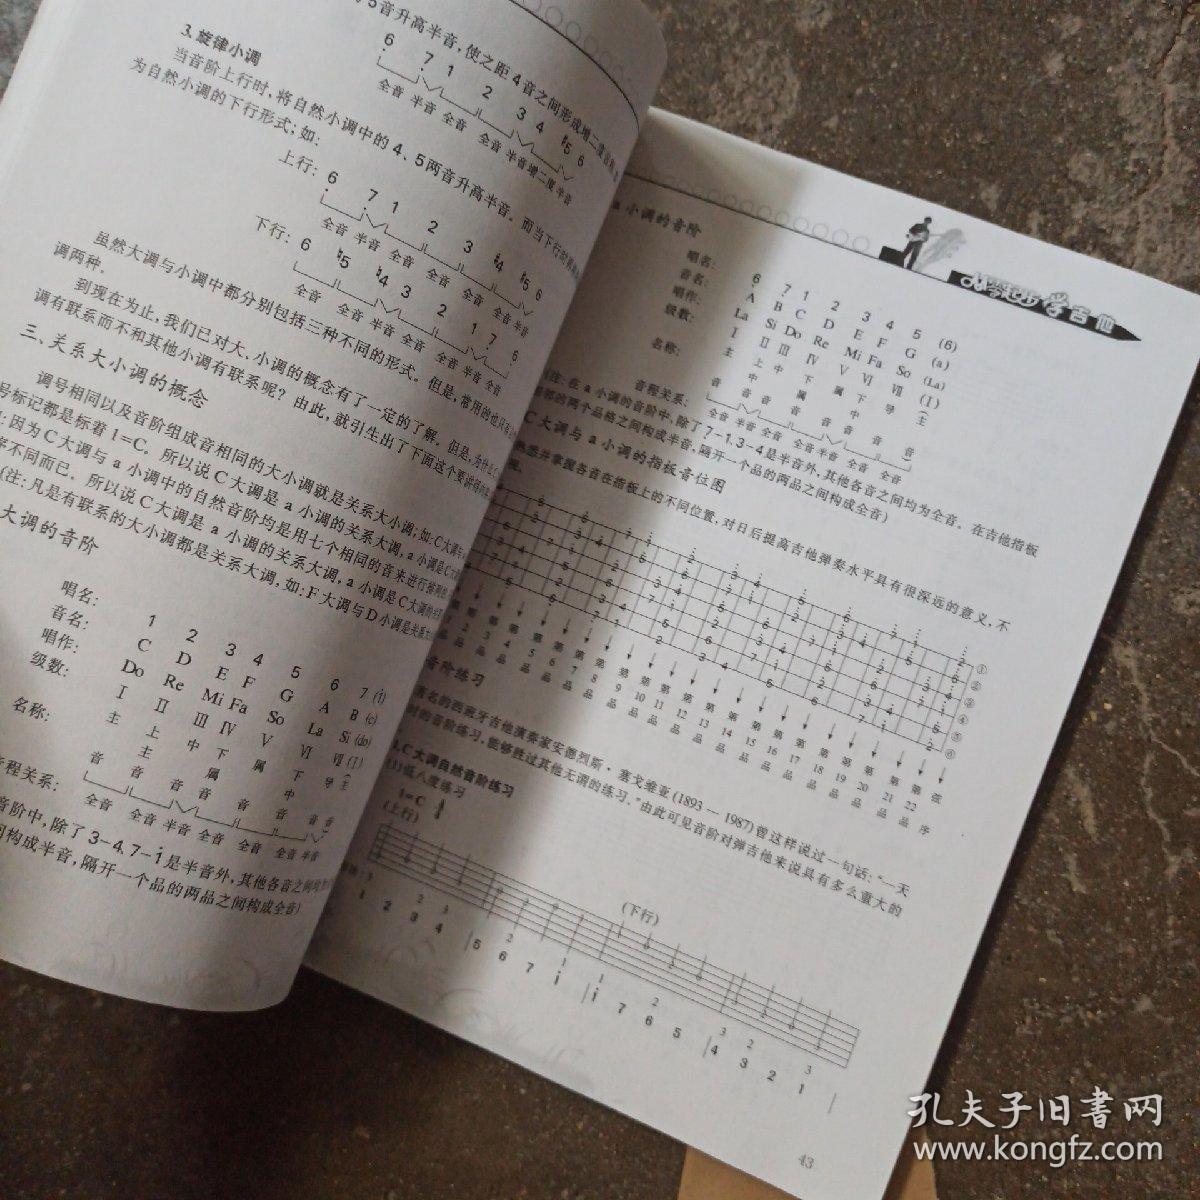 5音升高半音,使之距4音之间形成增二度音程
6 7 1 2 3 4 ♯5 6
全音 半音 全音 全音 半音 增二度 半音
3.旋律小调
当音阶上行时,将自然小调中的4、5两音升高半音。而当下行时
为自然小调的下行形式;如:
上行: 6 7 1 2 3 ♯4 ♯5 6
全音 半音 全音 全音 全音 全音 半音
下行: 6 ♮5 ♮4 3 2 1 7 6
全音 全音 半音 全音 全音 半音 全音
虽然大调与小调中都分别包括三种不同的形式。但是,常用的也只有
调两种。
到现在为止,我们已对大、小调的概念有了一定的了解。但是,为什么
调有联系而不和其他小调有联系呢?由此,就引生出了下面这个要讲
三、关系大小调的概念
调号相同以及音阶组成音相同的大小调就是关系大小调,如:C大调与
号标记都是标着1=C。所以说C大调是a小调的关系大调,a小调是C大调
:因为C大调与a小调中的自然音阶均是用七个相同的音来进行排列
序不同而已。所以说C大调是a小调的关系大调,a小调是C大调的关系
(注:凡是有联系的大小调都是关系大调,如:F大调与D小调是关系大
大调的音阶
唱名: 1 2 3 4 5 6 7 (1)
音名: C D E F G A B (c)
唱作: Do Re Mi Fa So La Si (do)
级数: I II III IV V VI VII (I)
名称: 主音 上主音 中音 下属音 属音 下中音 导音 (主音
音程关系:
全音 全音 半音 全音 全音 全音 半音
音阶中,除了3-4,7-1是半音外,其他各音之间均
构成半音,隔开一个品的两品之间构成全音)
从零起步学吉他
a小调的音阶
唱名: 6 7 1 2 3 4 5 (6)
音名: A B C D E F G (a)
唱作: La Si Do Re Mi Fa So (La)
级数: I II III IV V VI VII (I)
名称: 主音 上主音 中音 下属音 属音 下中音 导音 (主音
音程关系:
全音 半音 全音 全音 半音 全音 全音
(注:在a小调的音阶中,除了7-1,3-4是半音外,其他各音之间均为全音。在吉他指板
部的两个品格之间构成半音,隔开一个品的两品之间构成全音)
C大调与a小调的指板音位图
熟悉并掌握各音在指板上的不同位置,对日后提高吉他弹奏水平具有很深远的意义,不
视。
① ② ③ ④ ⑤ ⑥
第2品 第3品 第4品 第5品 第6品 第7品 第8品 第9品 第10品 第11品 第12品 第13品 第14品 第15品 第16品 第17品 第18品 第19品 第20品 第21品 第22品 弦序
音阶练习
著名的西班牙吉他演奏家安德烈斯·塞戈维亚(1893—1987)曾这样说过一句话:“一天
时的音阶练习,能够胜过其他无谓的练习。”由此可见音阶对弹吉他来说具有多么重大的
1.C大调自然音阶练习
(1)低八度练习
1=C
(上行)
(下行)
1 2 3 4 | 5 6 7 i | i 7 6 5 | 4 3 2 1 |
43
孔夫子旧书网
www.kongfz.com